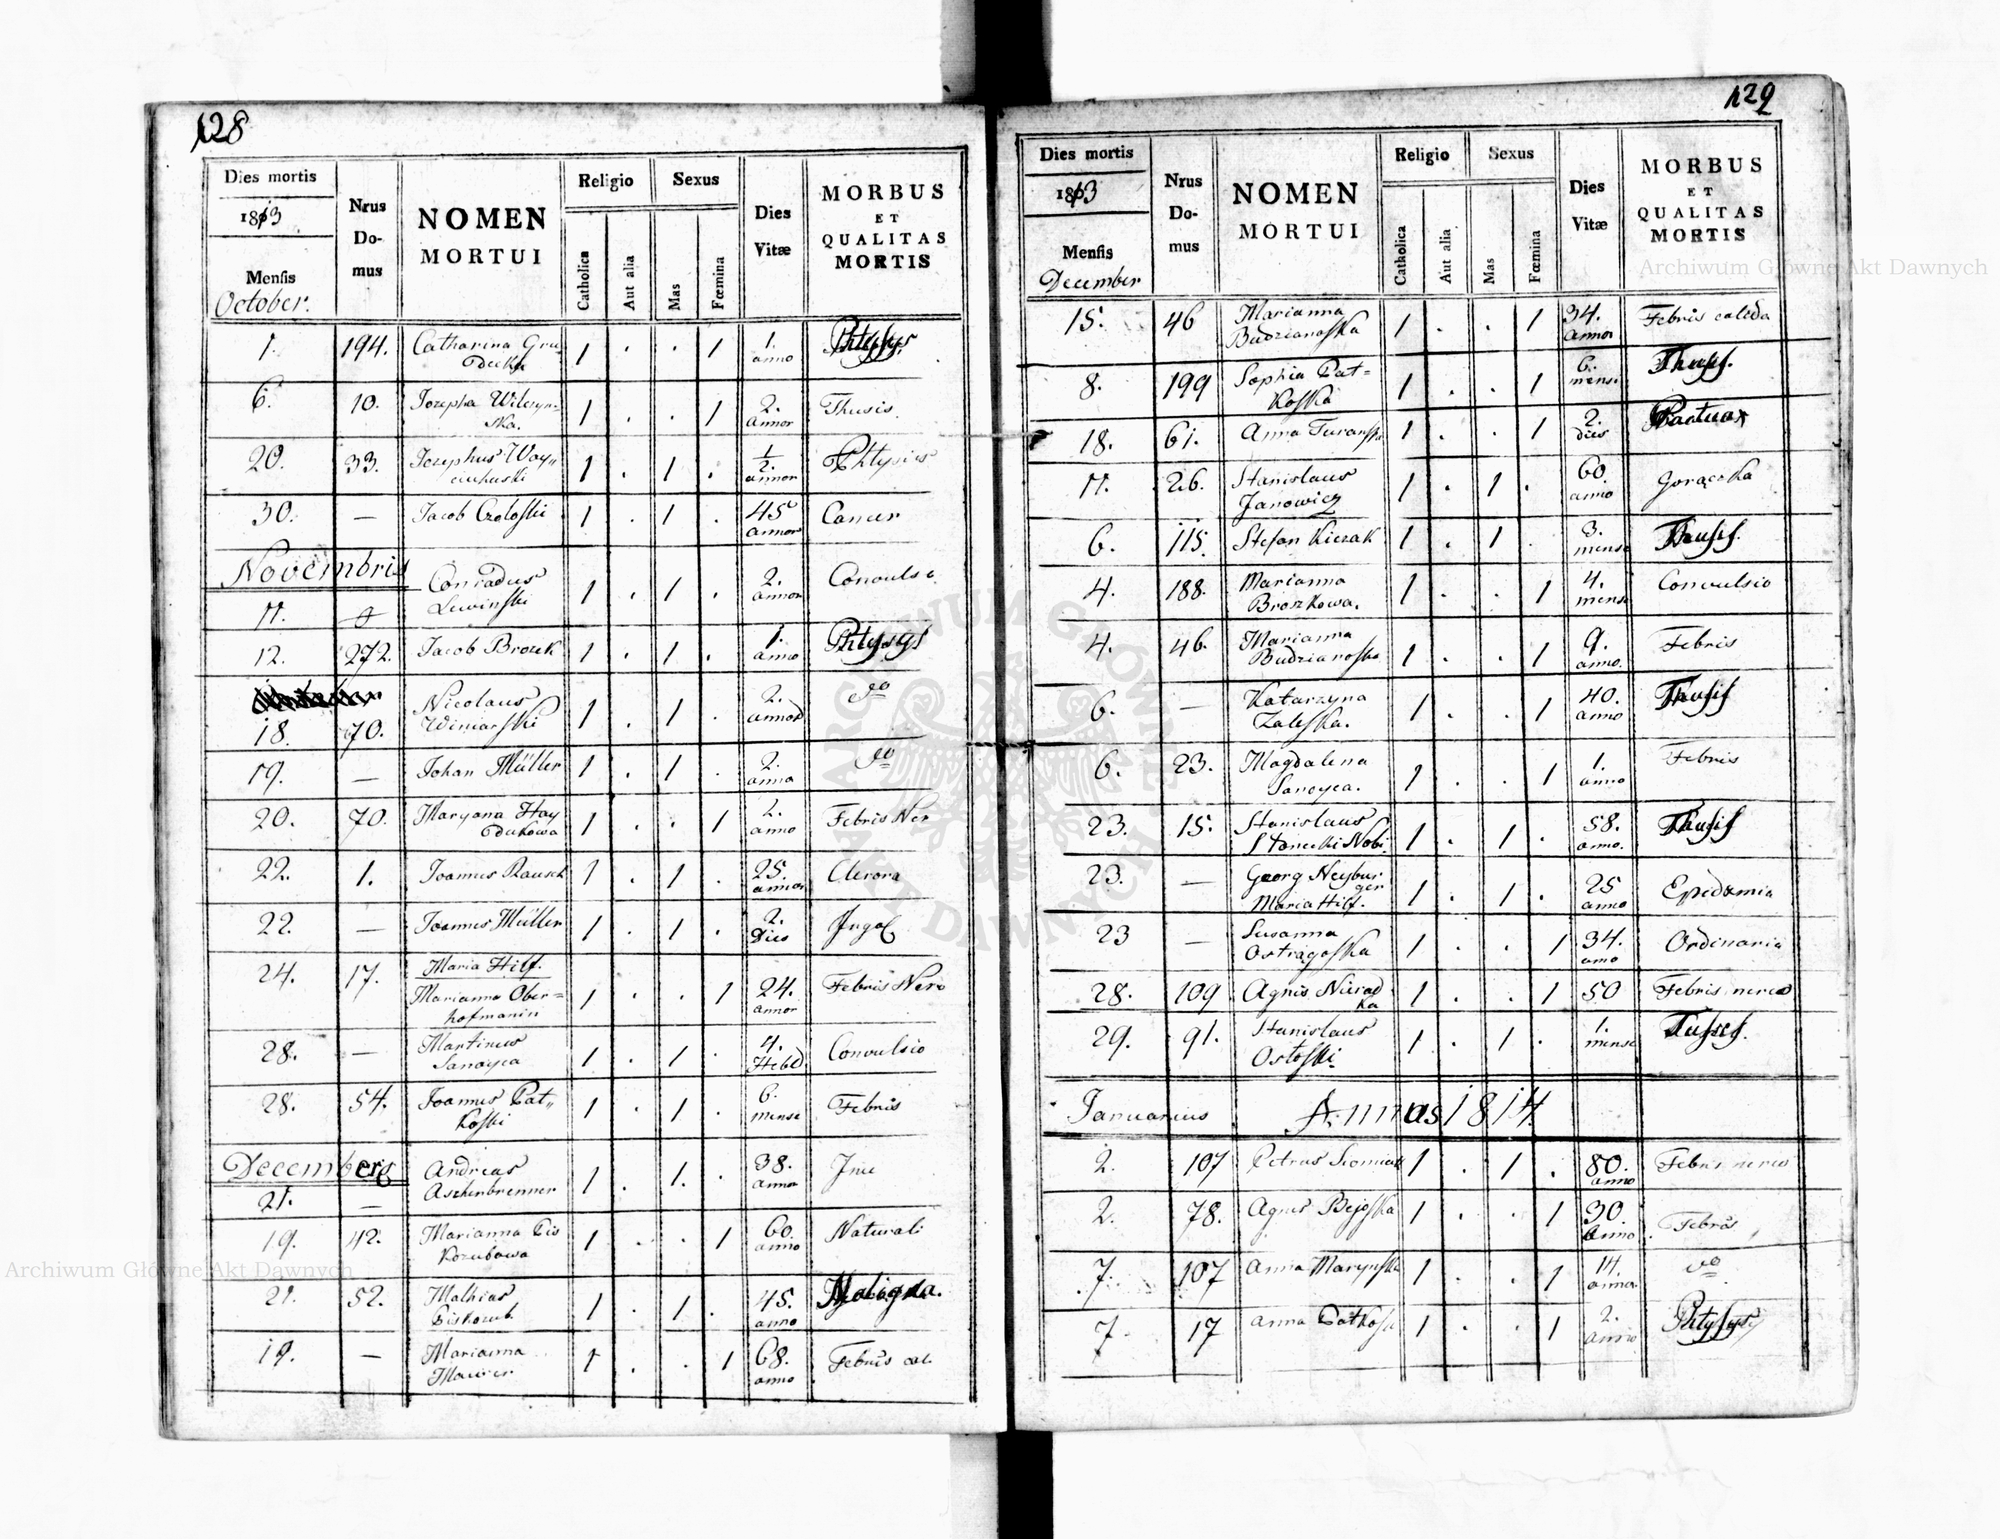 128
Dies mortis
1813
Mensis
October.
Nrus Do-mus
NOMEN
MORTUI
Religio
Catholica
Aut alia
Sexus
Mas
Fœmina
Dies
Vitæ
MORBUS
ET
QUALITAS
MORTIS
1. 194. Catharina Gru 1 . . 1 1. anno Phtysys
6. 10. Jozepha Wilczyn= 1 . . 1 2. annor Thusis.
ska.
20. 33. Jozephus Woy 1 . 1 . 1/2. annor Phtysis
30. — Jacob Czoloski 1 . 1 . 45 annor Cancer
Novembris
11. Conradus 1 . 1 . 2. annor Convulsio
Lewinski
12. 272. Jacob Brozek 1 . 1 . 1. anno Phtysys
18. 70. Nicolaus 1 . 1 . 2. annor do
Winiarski
19. — Johan Müller 1 . 1 . 2. anno do
20. 70. Maryana Hay 1 . . 1 2. anno Febris Ner
dukowa
22. 1. Joannes Rausch 1 . 1 . 25. annor
22. — Joannes Müller 1 . 1 . 2. Dies
24. 17. Maria Hilf.
Marianna Ober= 1 . . 1 24. annor Febris Nero
hofmanin
28. — Martinus 1 . 1 . 4. Hebd Convulsio
Sanoyca
28. 54. Joannes Pat 1 . 1 . 6. mense Febris
koski
Decembris
21. — Andreas 1 . 1 . 38. anno
Aschenbrenner
19. 42. Marianna Pis 1 . . 1 60. anno Naturali
kozubowa
21. 52. Mathias 1 . 1 . 45. anno Maligna.
Piskozub.
19. — Marianna 1 . . 1 68. anno Febris cal.
Maurer
129
Dies mortis
1813
Mensis
December
Nrus Do-mus
NOMEN
MORTUI
Religio
Catholica
Aut alia
Sexus
Mas
Fœmina
Dies
Vitæ
MORBUS
ET
QUALITAS
MORTIS
15. 46 Marianna 1 . . 1 34. annor Febris calida
Budzianoska
8. 199 Sophia Pat= 1 . . 1 6. mens.
koska
18. 61. Anna Turanska 1 . . 1 2. dies
11. 26. Stanislaus 1 . 1 . 60. anno Gorączka
Janowicz
6. 115. Stefan Kiczak 1 . 1 . 3. mense
4. 188. Marianna 1 . . 1 4. mens Convulsio
Broszkowa.
4. 46. Marianna 1 . . 1 9. anno. Febris
Budzianoska
6. — Katarzyna 1 . . 1 40. anno Thusis
Zaleska.
6. 23. Magdalena 1 . . 1 1. anno Febris
Sanoyca.
23. 15. Stanislaus 1 . 1 . 58. anno. Thusis
Stanecki Nobi.
23. — Georg Neybur 1 . 1 . 25 anno Epidemia
ger
Maria Hilf.
23 — Susanna 1 . . 1 34. anno Ordinaria
Ostrągoska
28. 109 Agnis Nierad 1 . . 1 50 Febris nervo
ka
29. 91. Stanislaus 1 . 1 . 1. mense Tussis.
Ostoski.
Januarius Annus 1814.
2. 107 Petrus Siomiak 1 . 1 . 80. anno Febris nervo
2. 78. Agnes Bejoska 1 . . 1 30. anno Febris
7. 107 Anna Marynska 1 . . 1 14. annor do
7. 17 Anna Patkoska 1 . . 1 2. anno Phtysys
Archiwum Główne Akt Dawnych
Archiwum Główne Akt Dawnych
ARCHIWUM GŁÓWNE AKT DAWNYCH